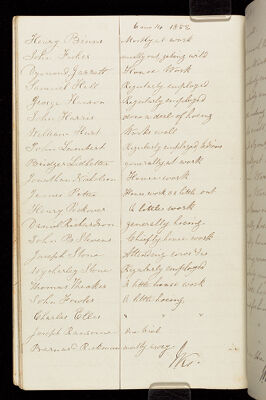 June 14 1852
Henry Binns Mostly at work
John Fisher mostly out
Raymond Garratt House Work
Samuel Hall Regularly employed
George Hewson Regularly employed
John Harris does a deal of hoeing
William Hurt Works well
John Lambert Regularly employed
Bridges Lidbetter generally at work
Jonathan Nicholson House work
James Potter House work a little out
Henry Rickman A little work
Daniel Richardson generally hoeing
John Stevens Chiefly house work
Joseph Stone Attending
Charles Stone Regularly employed
Thomas Thwaker A little house work
John Fowler A little hoeing
Charles Elles " " "
Joseph Ransome
Barnard Rickman mostly away